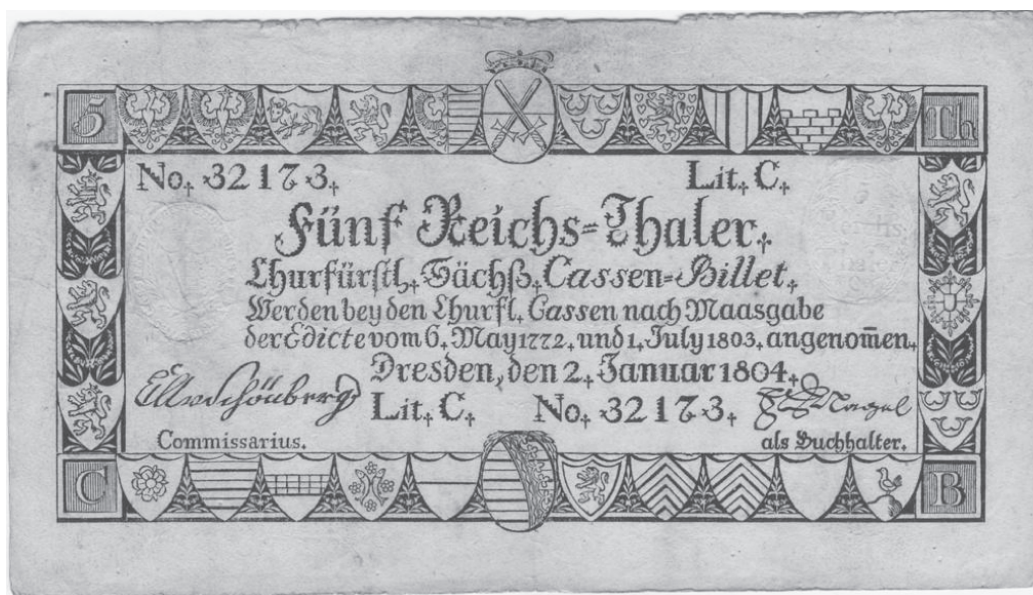 5 Th
No. 32173. Lit. C.
Fünf Reichs=Thaler.
Churfürstl. Sächß. Cassen=Billet.
Werden bey den Churfl. Cassen nach Maasgabe
der Edicte vom 6. May 1772. und 1. July 1803. angenom̄en.
Dresden, den 2. Januar 1804.
Lit. C. No. 32173.
Commissarius. als Buchhalter.
C B